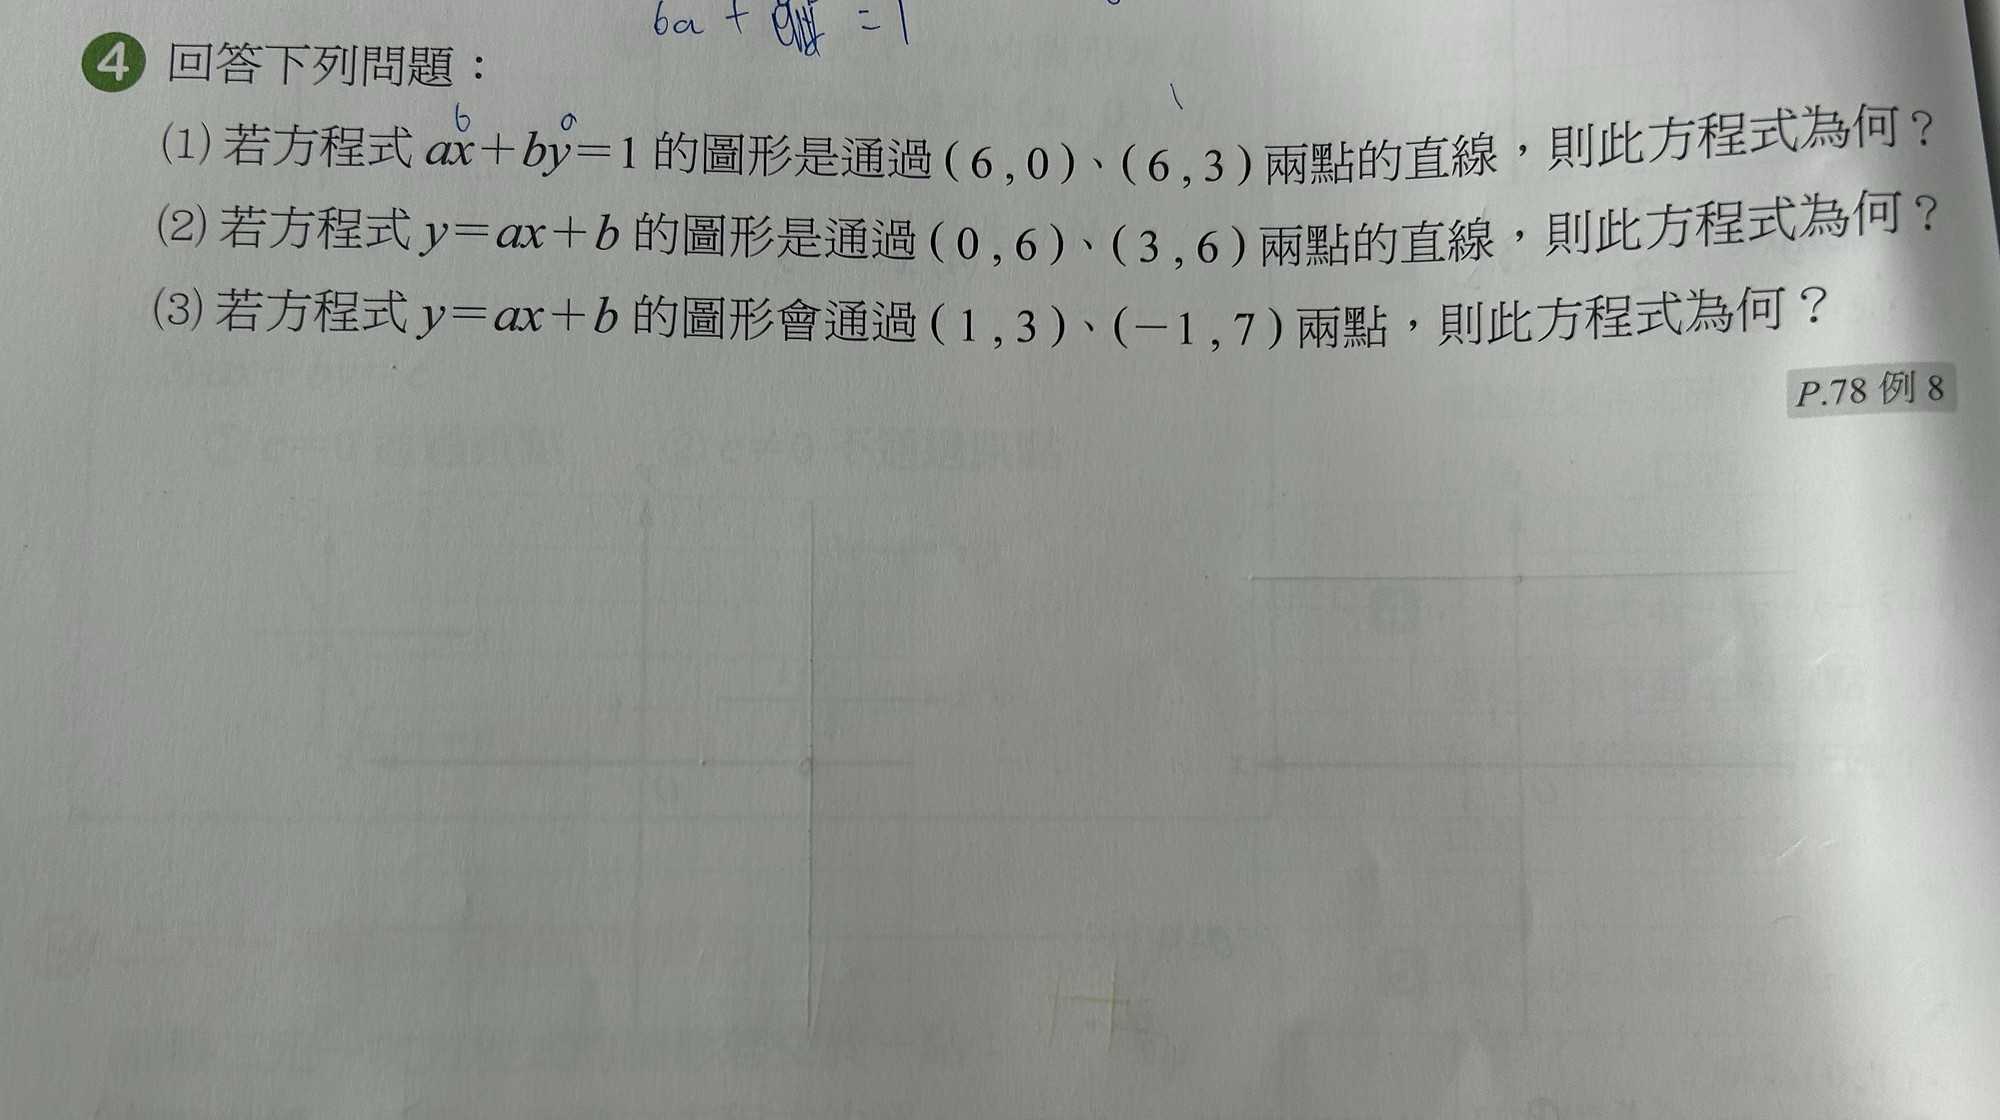 6a + = 1
4 回答下列問題：
6 0
(1) 若方程式 ax＋by＝1 的圖形是通過 ( 6 , 0 )、( 6 , 3 ) 兩點的直線，則此方程式為何？
(2) 若方程式 y＝ax＋b 的圖形是通過 ( 0 , 6 )、( 3 , 6 ) 兩點的直線，則此方程式為何？
(3) 若方程式 y＝ax＋b 的圖形會通過 ( 1 , 3 )、( －1 , 7 ) 兩點，則此方程式為何？
P.78 例 8